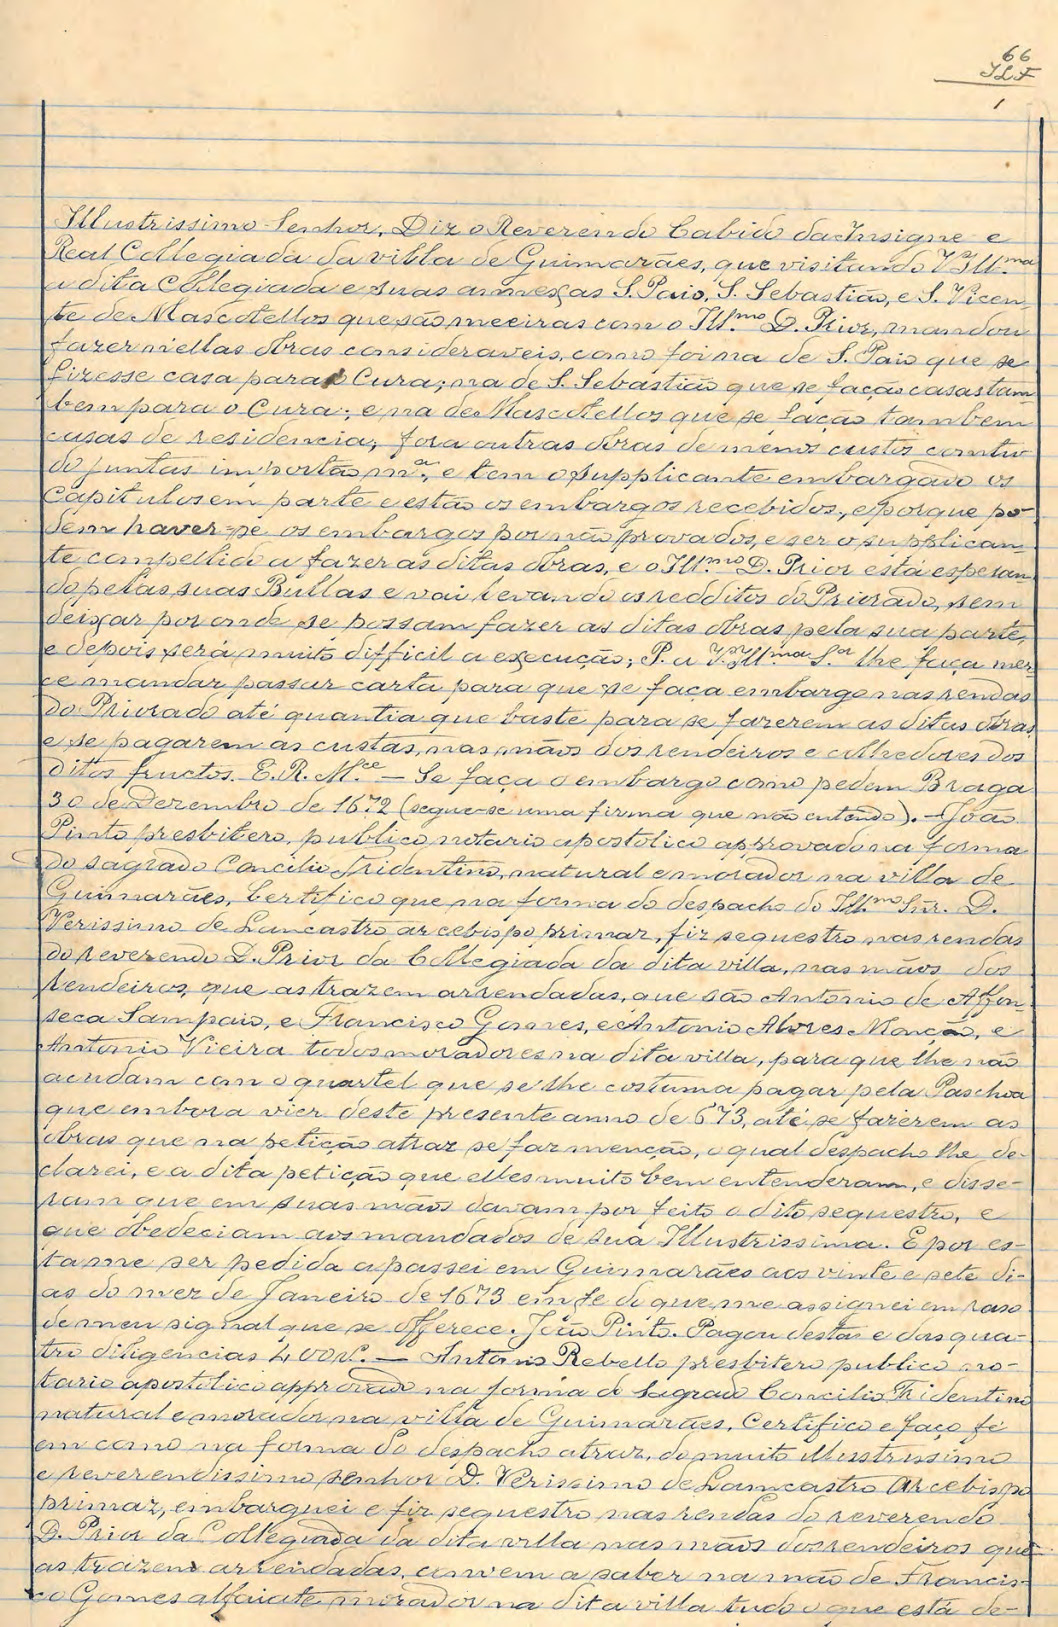 66
JLF
1
Illustrissimo Senhor, Diz o Reverendo Cabido da Insigne e
Real Collegiada da villa de Guimarães, que visitando V. Ill.ma
a dita Collegiada e suas annexas S. Paio, S. Sebastião, e S. Vicen-
te de Mascotellos que são meeiras com o Ill.mo D. Prior, mandou
fazer n'ellas obras consideraveis, como foi na de S. Paio que se
fizesse casa para o Cura; na de S. Sebastião que se fação casas tam-
bem para o Cura; e na de Mascotellos que se fação tambem
casas de residencia, fora outras obras de menos custos comtu-
do juntas importão m.a, e tem o supplicante embargado os
capitulos em parte e estão os embargos recebidos, e porque po-
dem haver-se os embargos por não provados, e ser o supplican-
te compellido a fazer as ditas obras, e o Ill.mo D. Prior está esperan-
do pelas suas Bullas e vai levando os redditos do Priorado, sem
deixar por onde se possam fazer as ditas obras pela sua parte,
e depois será muito difficil a execução; P. a V. Ill.ma S.a lhe faça mer-
ce mandar passar carta para que se faça embargo nas rendas
do Priorado até quantia que baste para se fazerem as ditas obras
e se pagarem as custas, nas mãos dos rendeiros e colhedores dos
ditos fructos. E. R. M.ce — Se faça o embargo como pedem Braga
30 de Dezembro de 1672 (segue-se uma firma que não entendo). — João
Pinto presbitero, publico notario apostolico approvado na forma
do sagrado Concilio Tridentino, natural e morador na villa de
Guimarães, Certifico que na forma do despacho do Ill.mo Snr. D.
Verissimo de Lancastro arcebispo primaz, fiz sequestro nas rendas
do reverendo D. Prior da Collegiada da dita villa, nas mãos dos
rendeiros, que as trazem arrendadas, que são Antonio de Affon-
seca Sampaio, e Francisco Gomes, e Antonio Alvres Monção, e
Antonio Vieira todos moradores na dita villa, para que lhe não
acudam com o quartel que se lhe costuma pagar pela Paschoa
que embora vier deste presente anno de 673, até se fazerem as
obras que na petição atraz se faz menção, o qual despacho lhe de-
clarei, e a dita petição que elles muito bem entenderam, e disse-
ram que em suas mãos davam por feito o dito sequestro, e
que obedeciam aos mandados de sua Illustrissima. E por es-
ta me ser pedida a passei em Guimarães aos vinte e sete di-
as do mez de Janeiro de 1673 em fe do que me assignei em raso
de meu signal que se offerece. João Pinto. Pagou desta e das qua-
tro diligencias 400 rs. — Antonio Rebello presbitero publico no-
tario apostolico approvado na forma do Sagrado Concilio Tridentino
natural e morador na villa de Guimarães, Certifico e faço fé
em como na forma do despacho atraz, do muito illustrissimo
e reverendissimo senhor D. Verissimo de Lamcastro Arcebispo
primaz, embarguei e fiz sequestro nas rendas do reverendo
D. Prior da Collegiada da dita villa nas mãos dos rendeiros que
as trazem arrendadas, convem a saber na mão de Francis-
co Gomes alfaiate morador na dita villa tudo o que está de-